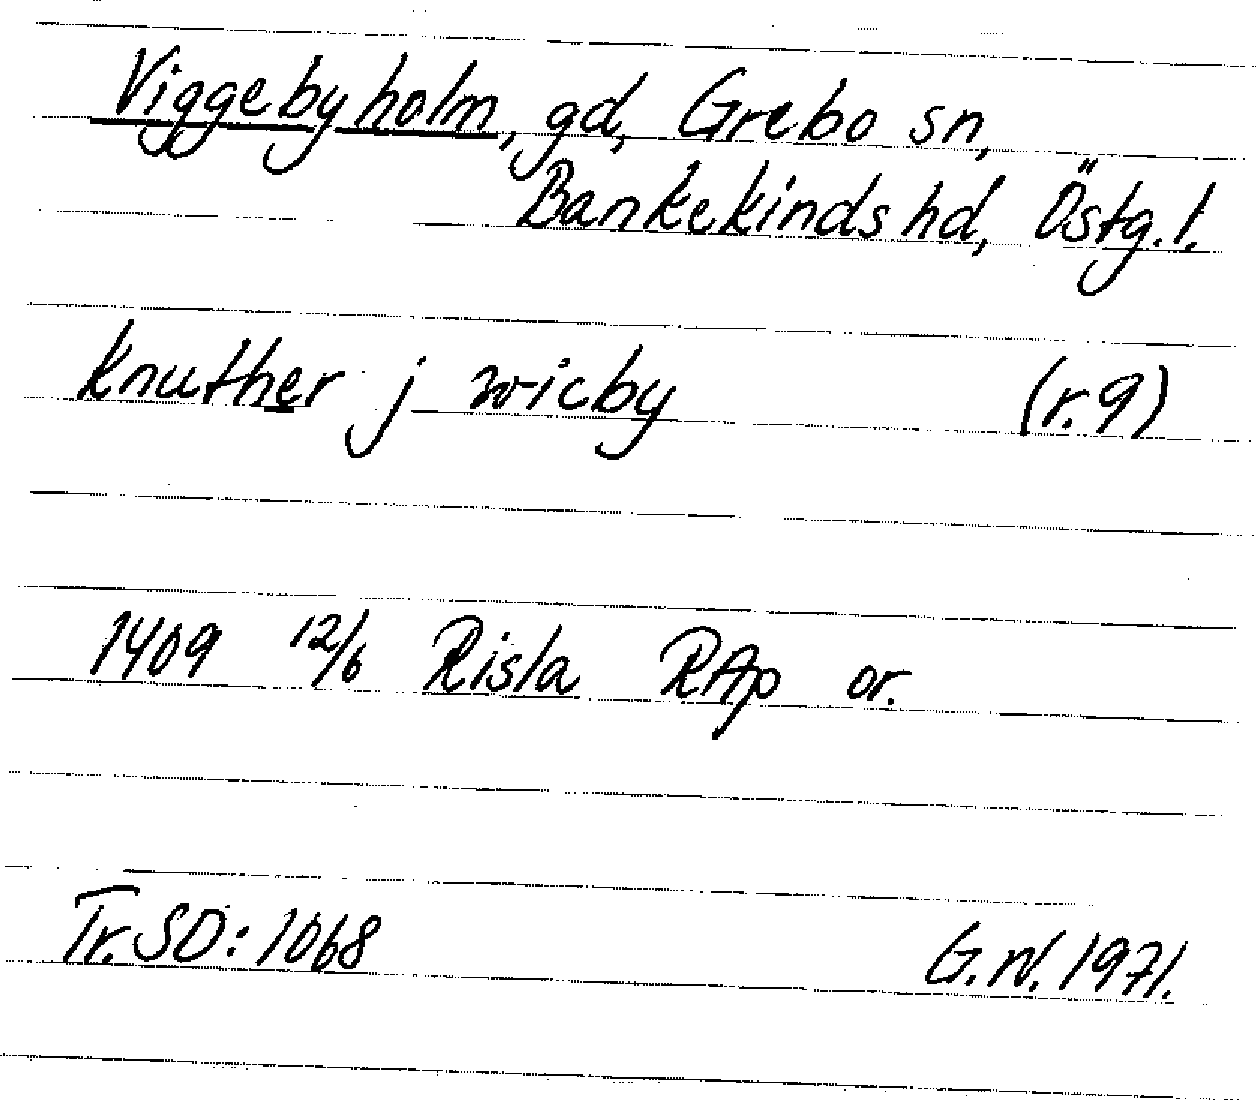 Viggebyholm, gd, Grebo sn,
Bankekinds hd, Östg. l.
knuther j wicby (r. 9)
1409 12/6 Risla RAp or.
Tr. SD: 1068 G.W. 1971.